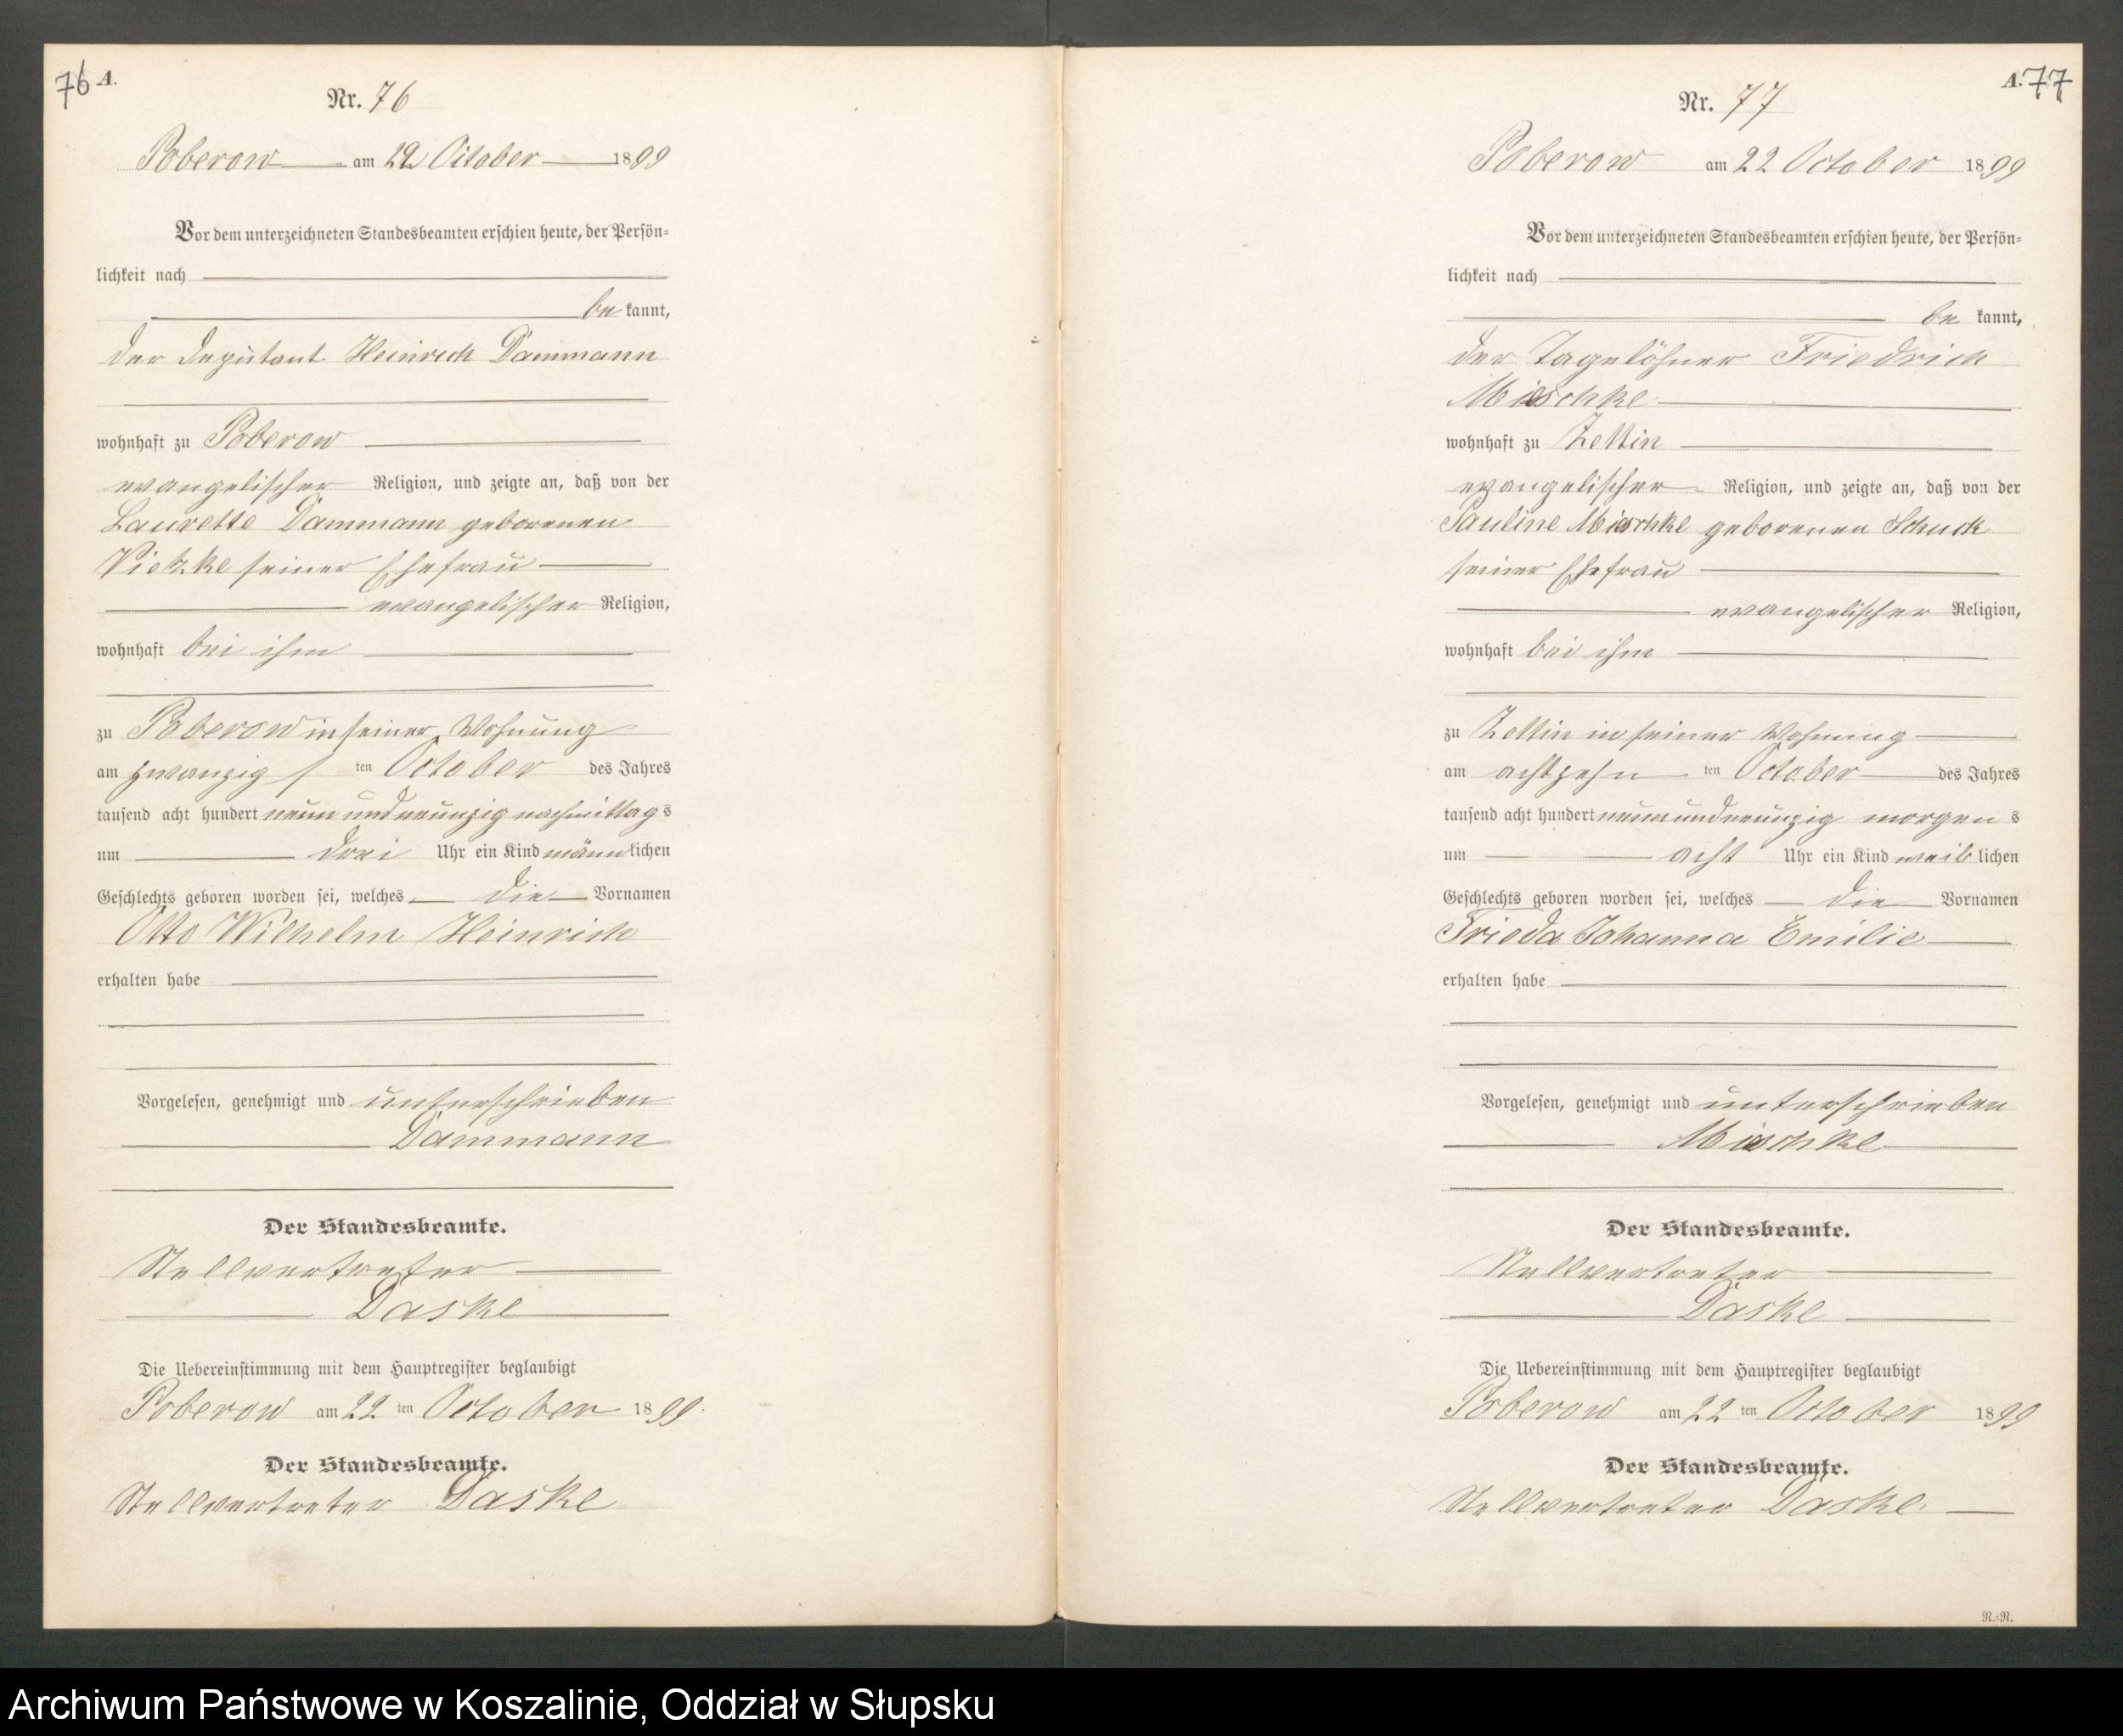 76 A.
Nr. 76
Poberow am 22 October 1899
Vor dem unterzeichneten Standesbeamten erschien heute, der Persön=
lichkeit nach
be kannt,
der Deputant Heinrich Dammann
wohnhaft zu Poberow
evangelischer Religion, und zeigte an, daß von der
Laurette Dammann geborenen
Vietzke seiner Ehefrau
evangelischer Religion,
wohnhaft bei ihm
zu Poberow in seiner Wohnung
am zwanzig ten October des Jahres
tausend acht hundert neun und neunzig nachmittags
um drei Uhr ein Kind männlichen
Geschlechts geboren worden sei, welches die Vornamen
Otto Wilhelm Heinrich
erhalten habe
Vorgelesen, genehmigt und unterschrieben
Dammann
Der Standesbeamte.
Stellvertreter
Daske
Die Uebereinstimmung mit dem Hauptregister beglaubigt
Poberow am 22 ten October 1899.
Der Standesbeamte.
Stellvertreter Daske
A. 77
Nr. 77
Poberow am 22 October 1899
Vor dem unterzeichneten Standesbeamten erschien heute, der Persön=
lichkeit nach
be kannt,
der Tagelöhner Friedrich
Mischke
wohnhaft zu Zettin
evangelischer Religion, und zeigte an, daß von der
Pauline Mischke geborenen Schuck
seiner Ehefrau
evangelischer Religion,
wohnhaft bei ihm
zu Zettin in seiner Wohnung
am achtzehn ten October des Jahres
tausend acht hundert neunundneunzig morgens
um acht Uhr ein Kind weiblichen
Geschlechts geboren worden sei, welches die Vornamen
Frieda Johanna Emilie
erhalten habe
Vorgelesen, genehmigt und unterschrieben
Mischke
Der Standesbeamte.
Stellvertreter
Daske
Die Uebereinstimmung mit dem Hauptregister beglaubigt
Poberow am 22 ten October 1899
Der Standesbeamte.
Stellvertreter Daske.
R.=R.
Archiwum Państwowe w Koszalinie, Oddział w Słupsku